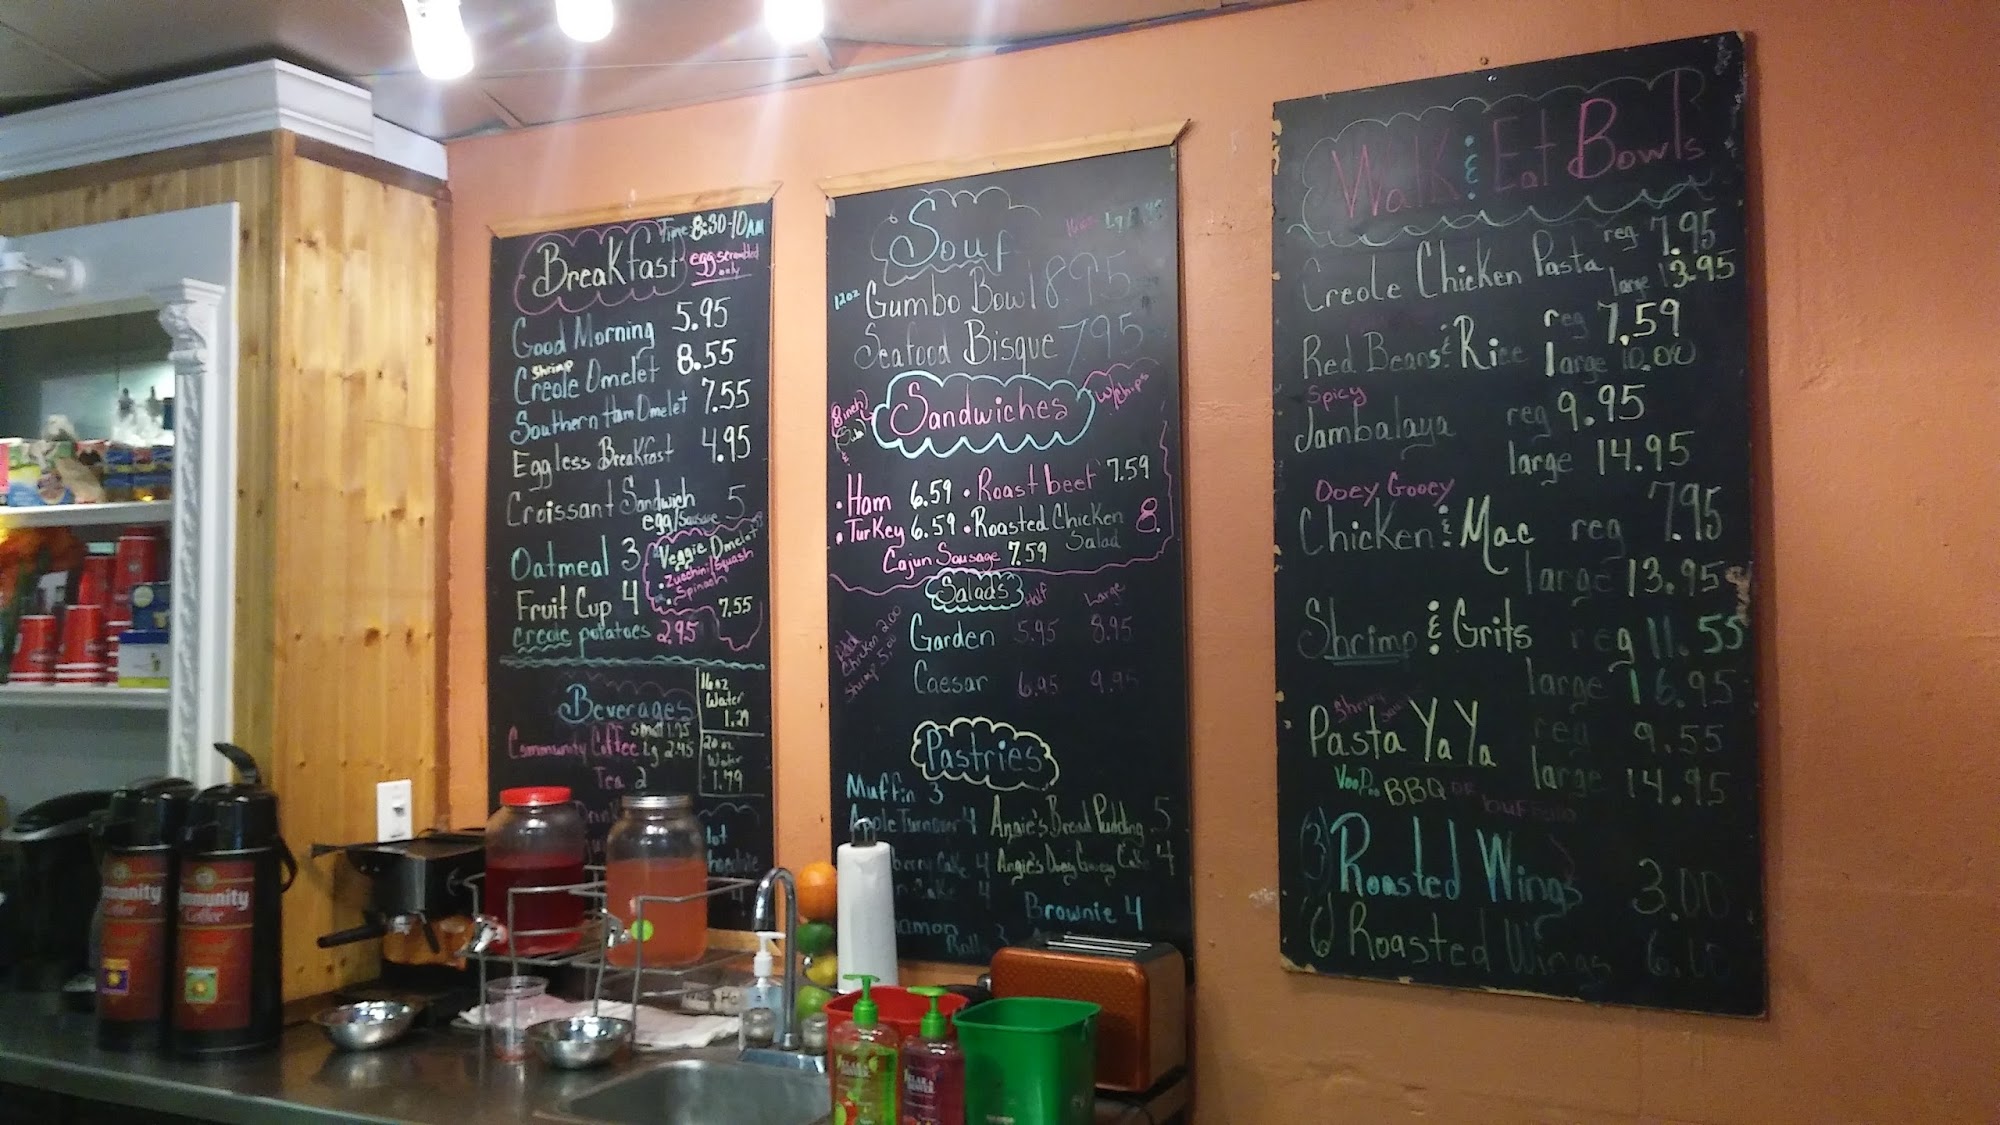 Breakfast Time: 8:30-10AM
egg scrambled only
Good Morning 5.95
Shrimp
Creole Omelet 8.55
Southern Ham Omelet 7.55
Eggless Breakfast 4.95
Croissant Sandwich 5
egg/Sausage
Oatmeal 3
Fruit Cup 4
creole potatoes 2.95
Veggie Omelet
• Zucchini/Squash
• Spinach
7.55
Beverages
small 1.95
Community Coffee Lg 2.45
Tea 2
16 oz
Water
1.29
20 oz
Water
1.79
Soup
12oz Gumbo Bowl 8.95
Seafood Bisque 7.95
8 inch
Sandwiches
w/chips
• Ham 6.59 • Roast beef 7.59
• Turkey 6.59 • Roasted Chicken Salad 8.
Cajun Sausage 7.59
Salads Half Large
Garden 5.95 8.95
Caesar 6.95 9.95
Add
Chicken 2.00
Shrimp 5.00
Pastries
Muffin 3
Apple Turnover 4 Angie's Bread Pudding 5
Cake 4 Angie's Ooey Gooey Cake 4
4
Brownie 4
Walk & Eat Bowls
Creole Chicken Pasta reg 7.95
large 13.95
Red Beans & Rice reg 7.59
large 10.00
Spicy
Jambalaya reg 9.95
large 14.95
Ooey Gooey
Chicken & Mac reg 7.95
large 13.95
Shrimp & Grits reg 11.55
large 16.95
Pasta YaYa reg 9.55
large 14.95
VooDoo BBQ or buffalo
(3) Roasted Wings 3.00
6 Roasted Wings 6.00
mmunity
Coffee
mmunity
Coffee